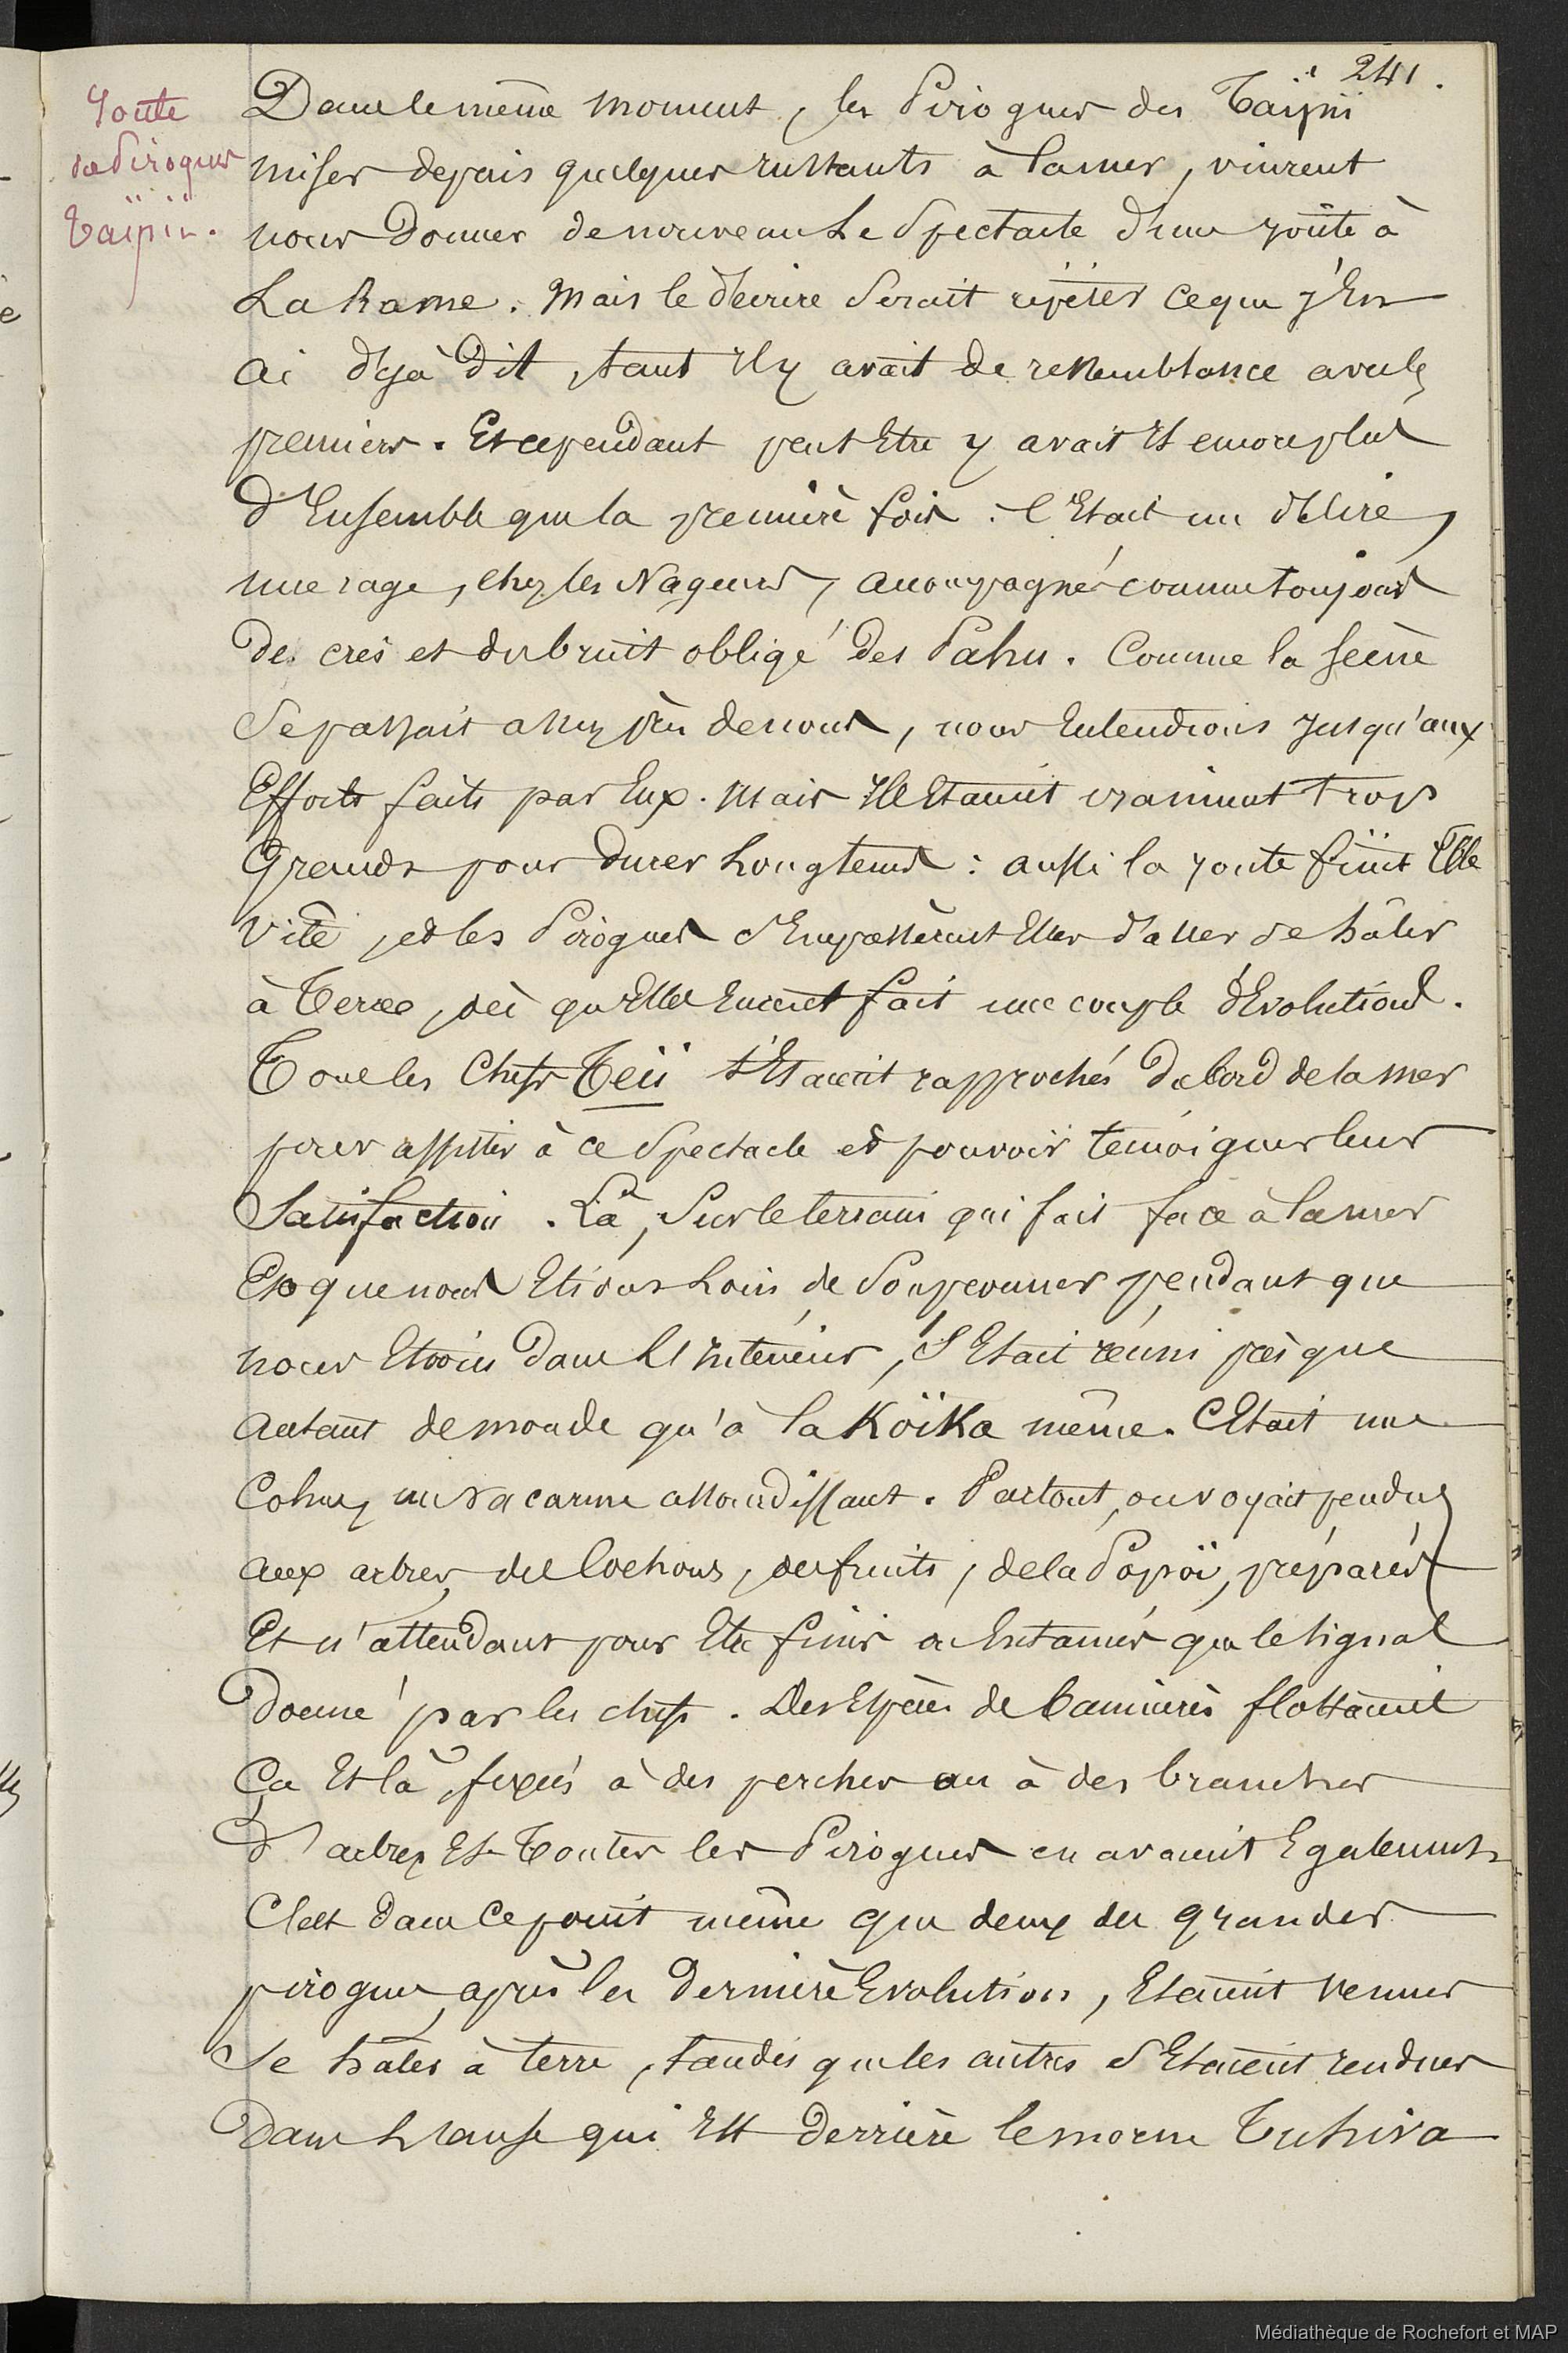 241.
Joute
de Pirogues
Taïpii.
Dans le même moment, les Pirogues des Taïpii
mises depuis quelques instants à la mer, vinrent
nous Donner de nouveau Le Spectacle d'une joûte à
La Rame. Mais le décrire Serait répéter ce que j'En
ai déjà dit, tant Il y avait de ressemblance avec les
premiers. Et cependant peut Etre y avait Il encore plus
d'Ensemble que la première fois : c'Etait un délire,
une rage, chez les Nageurs, accompagnés comme toujours
de cris et du bruit obligé des Pahu. Comme la scène
Se passait assez près de nous, nous Entendions jusqu'aux
Efforts faits par Eux. Mais Ils Etaient vraiment trop
Grands pour durer Longtems : aussi la joute finit Elle
vite, et les Pirogues s'Empressèrent Elles d'aller se hâler
à Terre, dès qu'Elles Eurent fait une couple d'Evolutions.
Tous les Chefs Teii s'Etaient rapprochés du bord de la mer
pour assister à ce Spectacle et pouvoir témoigner leur
Satisfaction. Là, Sur le terrain qui fait face à la mer
Et que nous Etions Loin de Soupçonner pendant que
nous Etions dans L'Intérieur, S'Etait réuni presque
autant de monde qu'à la Koïka même. C'Etait une
Cohue, un vacarme assourdissant. Partout, on voyait pendus
aux arbres, des Cochons, des fruits, de la Popoï, préparés
Et n'attendant pour Etre finis ou Entamés que le signal
donné par les chefs. Des Espèces de bannières flottaient
Ça Et là, fixées à des perches ou à des branches
d'arbres Et Toutes les Pirogues en avaient Egalement.
C'est dans ce point même que deux des grandes
pirogues, après les dernières Evolutions, Etaient venues
Se hâler à terre, tandis que les autres s'Etaient rendues
Dans L'anse qui Est derrière le morne Tuhiva
Médiathèque de Rochefort et MAP